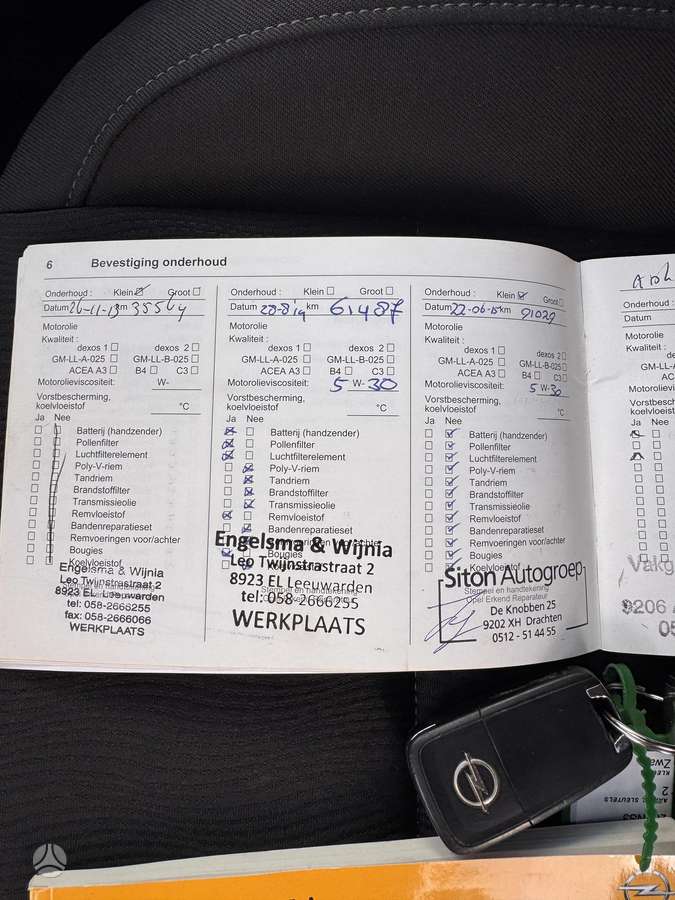 6 Bevestiging onderhoud
Onderhoud : Klein Groot
Datum 26-11-13 km 35564
Motorolie
Kwaliteit :
dexos 1 dexos 2
GM-LL-A-025 GM-LL-B-025
ACEA A3 B4 C3
Motorolieviscositeit: W-
Vorstbescherming,
koelvloeistof °C
Ja Nee
Batterij (handzender)
Pollenfilter
Luchtfilterelement
Poly-V-riem
Tandriem
Brandstoffilter
Transmissieolie
Remvloeistof
Bandenreparatieset
Remvoeringen voor/achter
Bougies
Koelvloeistof
Engelsma & Wijnia
Leo Twijnstrastraat 2
8923 EL Leeuwarden
tel: 058-2666255
fax: 058-2666066
WERKPLAATS
Onderhoud : Klein Groot
Datum 28-8-14 km 61487
Motorolie
Kwaliteit :
dexos 1 dexos 2
GM-LL-A-025 GM-LL-B-025
ACEA A3 B4 C3
Motorolieviscositeit: 5 W-30
Vorstbescherming,
koelvloeistof °C
Ja Nee
Batterij (handzender)
Pollenfilter
Luchtfilterelement
Poly-V-riem
Tandriem
Brandstoffilter
Transmissieolie
Remvloeistof
Bandenreparatieset
Bougies
Engelsma & Wijnia
Leo Twijnstrastraat 2
8923 EL Leeuwarden
tel: 058-2666255
WERKPLAATS
Onderhoud : Klein Groot
Datum 22-06-15 km 91029
Motorolie
Kwaliteit :
dexos 1 dexos 2
GM-LL-A-025 GM-LL-B-025
ACEA A3 B4 C3
Motorolieviscositeit: 5 W-30
Vorstbescherming,
koelvloeistof °C
Ja Nee
Batterij (handzender)
Pollenfilter
Luchtfilterelement
Poly-V-riem
Tandriem
Brandstoffilter
Transmissieolie
Remvloeistof
Bandenreparatieset
Remvoeringen voor/achter
Bougies
Koelvloeistof
Siton Autogroep
Stempel en handtekening
Opel Erkend Reparateur
De Knobben 25
9202 XH Drachten
0512 - 51 44 55
Onderhoud :
Datum
Motorolie
Kwaliteit :
GM-LL-A
ACE
Motorolievi
Vorstbesch
koelvloeist
Ja Nee
Vakg
9206